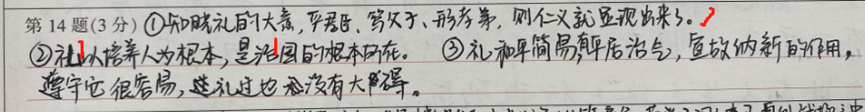 第14题(3分) ①知晓礼的大意,平君臣、笃父子、形孝第,则仁义就显现出来了。
②礼以培养人为根本,是治国的根本所在。 ③礼和平简易,有居治乱,宣故纳新的作用,
遵守它很容易,违礼过也没有大障碍。